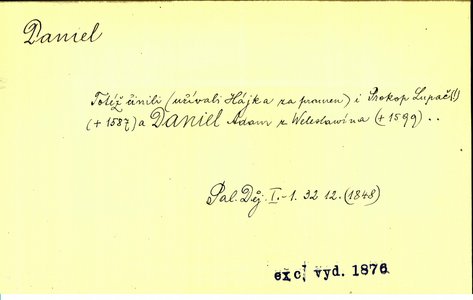 Daniel
Totéž činili (užívali Hájka za pramen) i Prokop Lupáč (!)
(+ 1587) a DANIEL Adam z Weleslawína (+ 1599) ..
Pal. Děj. I.-1. 32 12. (1848)
exc. vyd. 1876